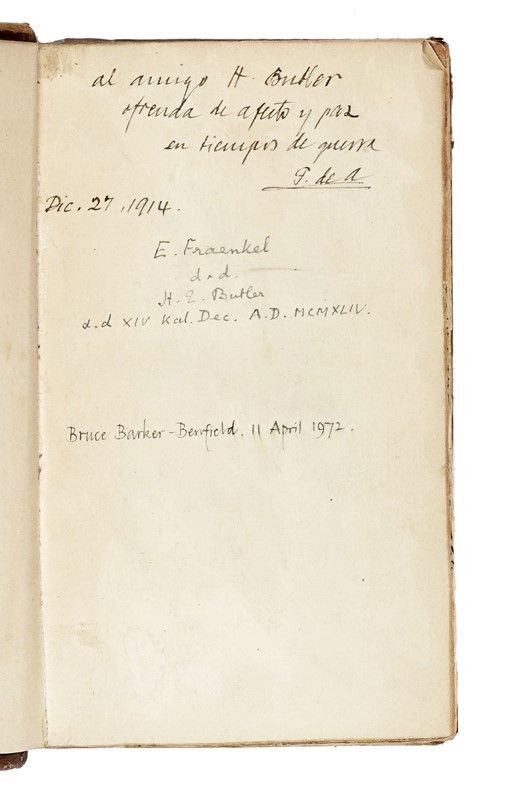 al amigo H. Butler
ofrenda de afecto y paz
en tiempos de guerra
T. de A.
Dic. 27, 1914.
E. Fraenkel
d.d.
H. E. Butler
a.d XIV Kal. Dec. A.D. MCMXLIV.
Bruce Barker-Benfield, 11 April 1972.